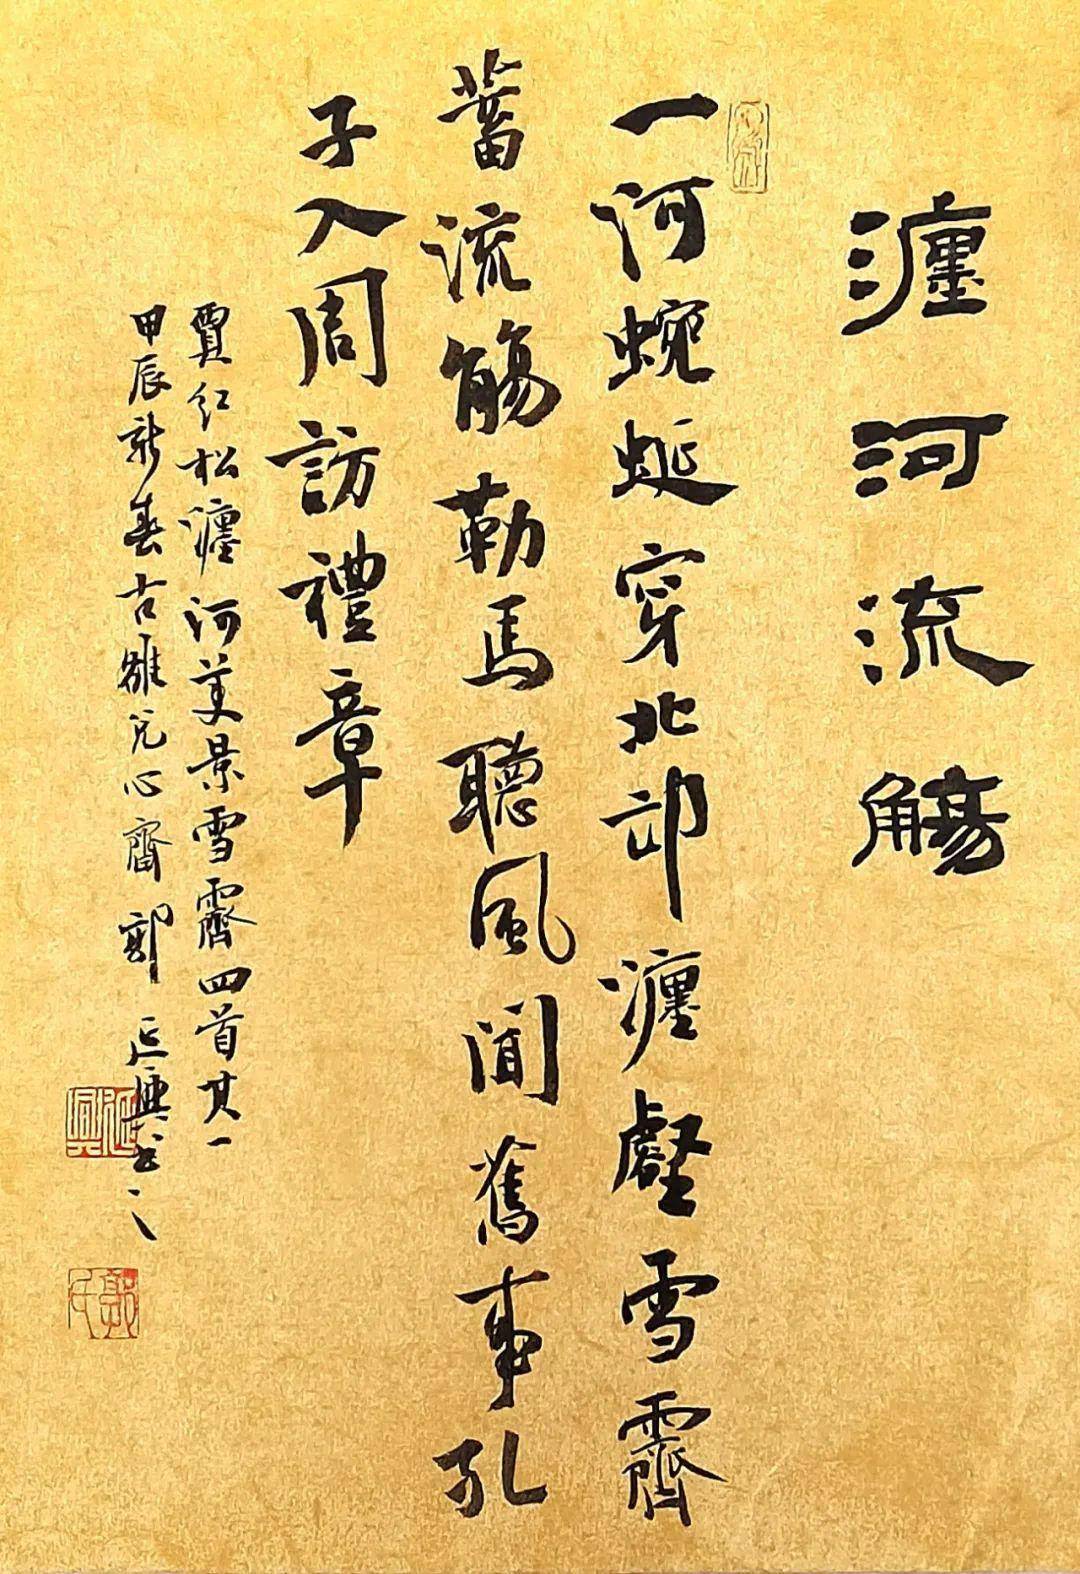 瀍河流觴
一河蜿蜒穿北邙瀍壑雪霽
蓄流觴勒馬聽風聞舊事孔
子入周訪禮章
賈紅松瀍河美景雪霽四首其一
甲辰新春古雒兑心齋郭延興書之
延興
郭氏